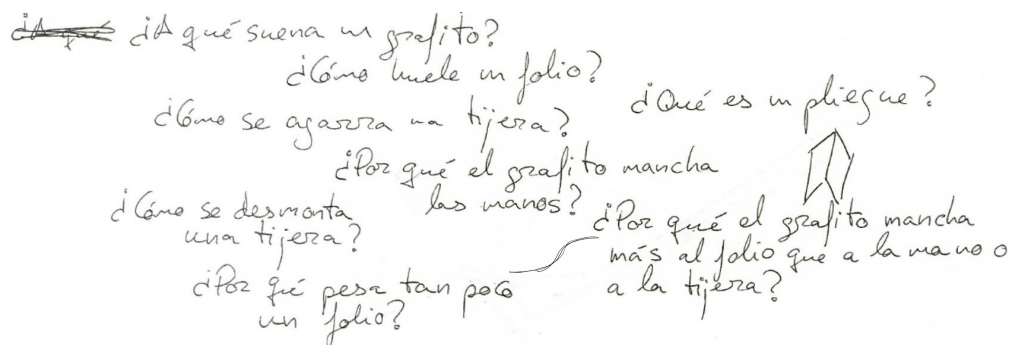 ¿A qué suena un grafito?
¿Cómo huele un folio?
¿Qué es un pliegue?
¿Cómo se agarra una tijera?
¿Por qué el grafito mancha
las manos?
¿Cómo se desmonta
una tijera?
¿Por qué el grafito mancha
más al folio que a la mano o
a la tijera?
¿Por qué pesa tan poco
un folio?